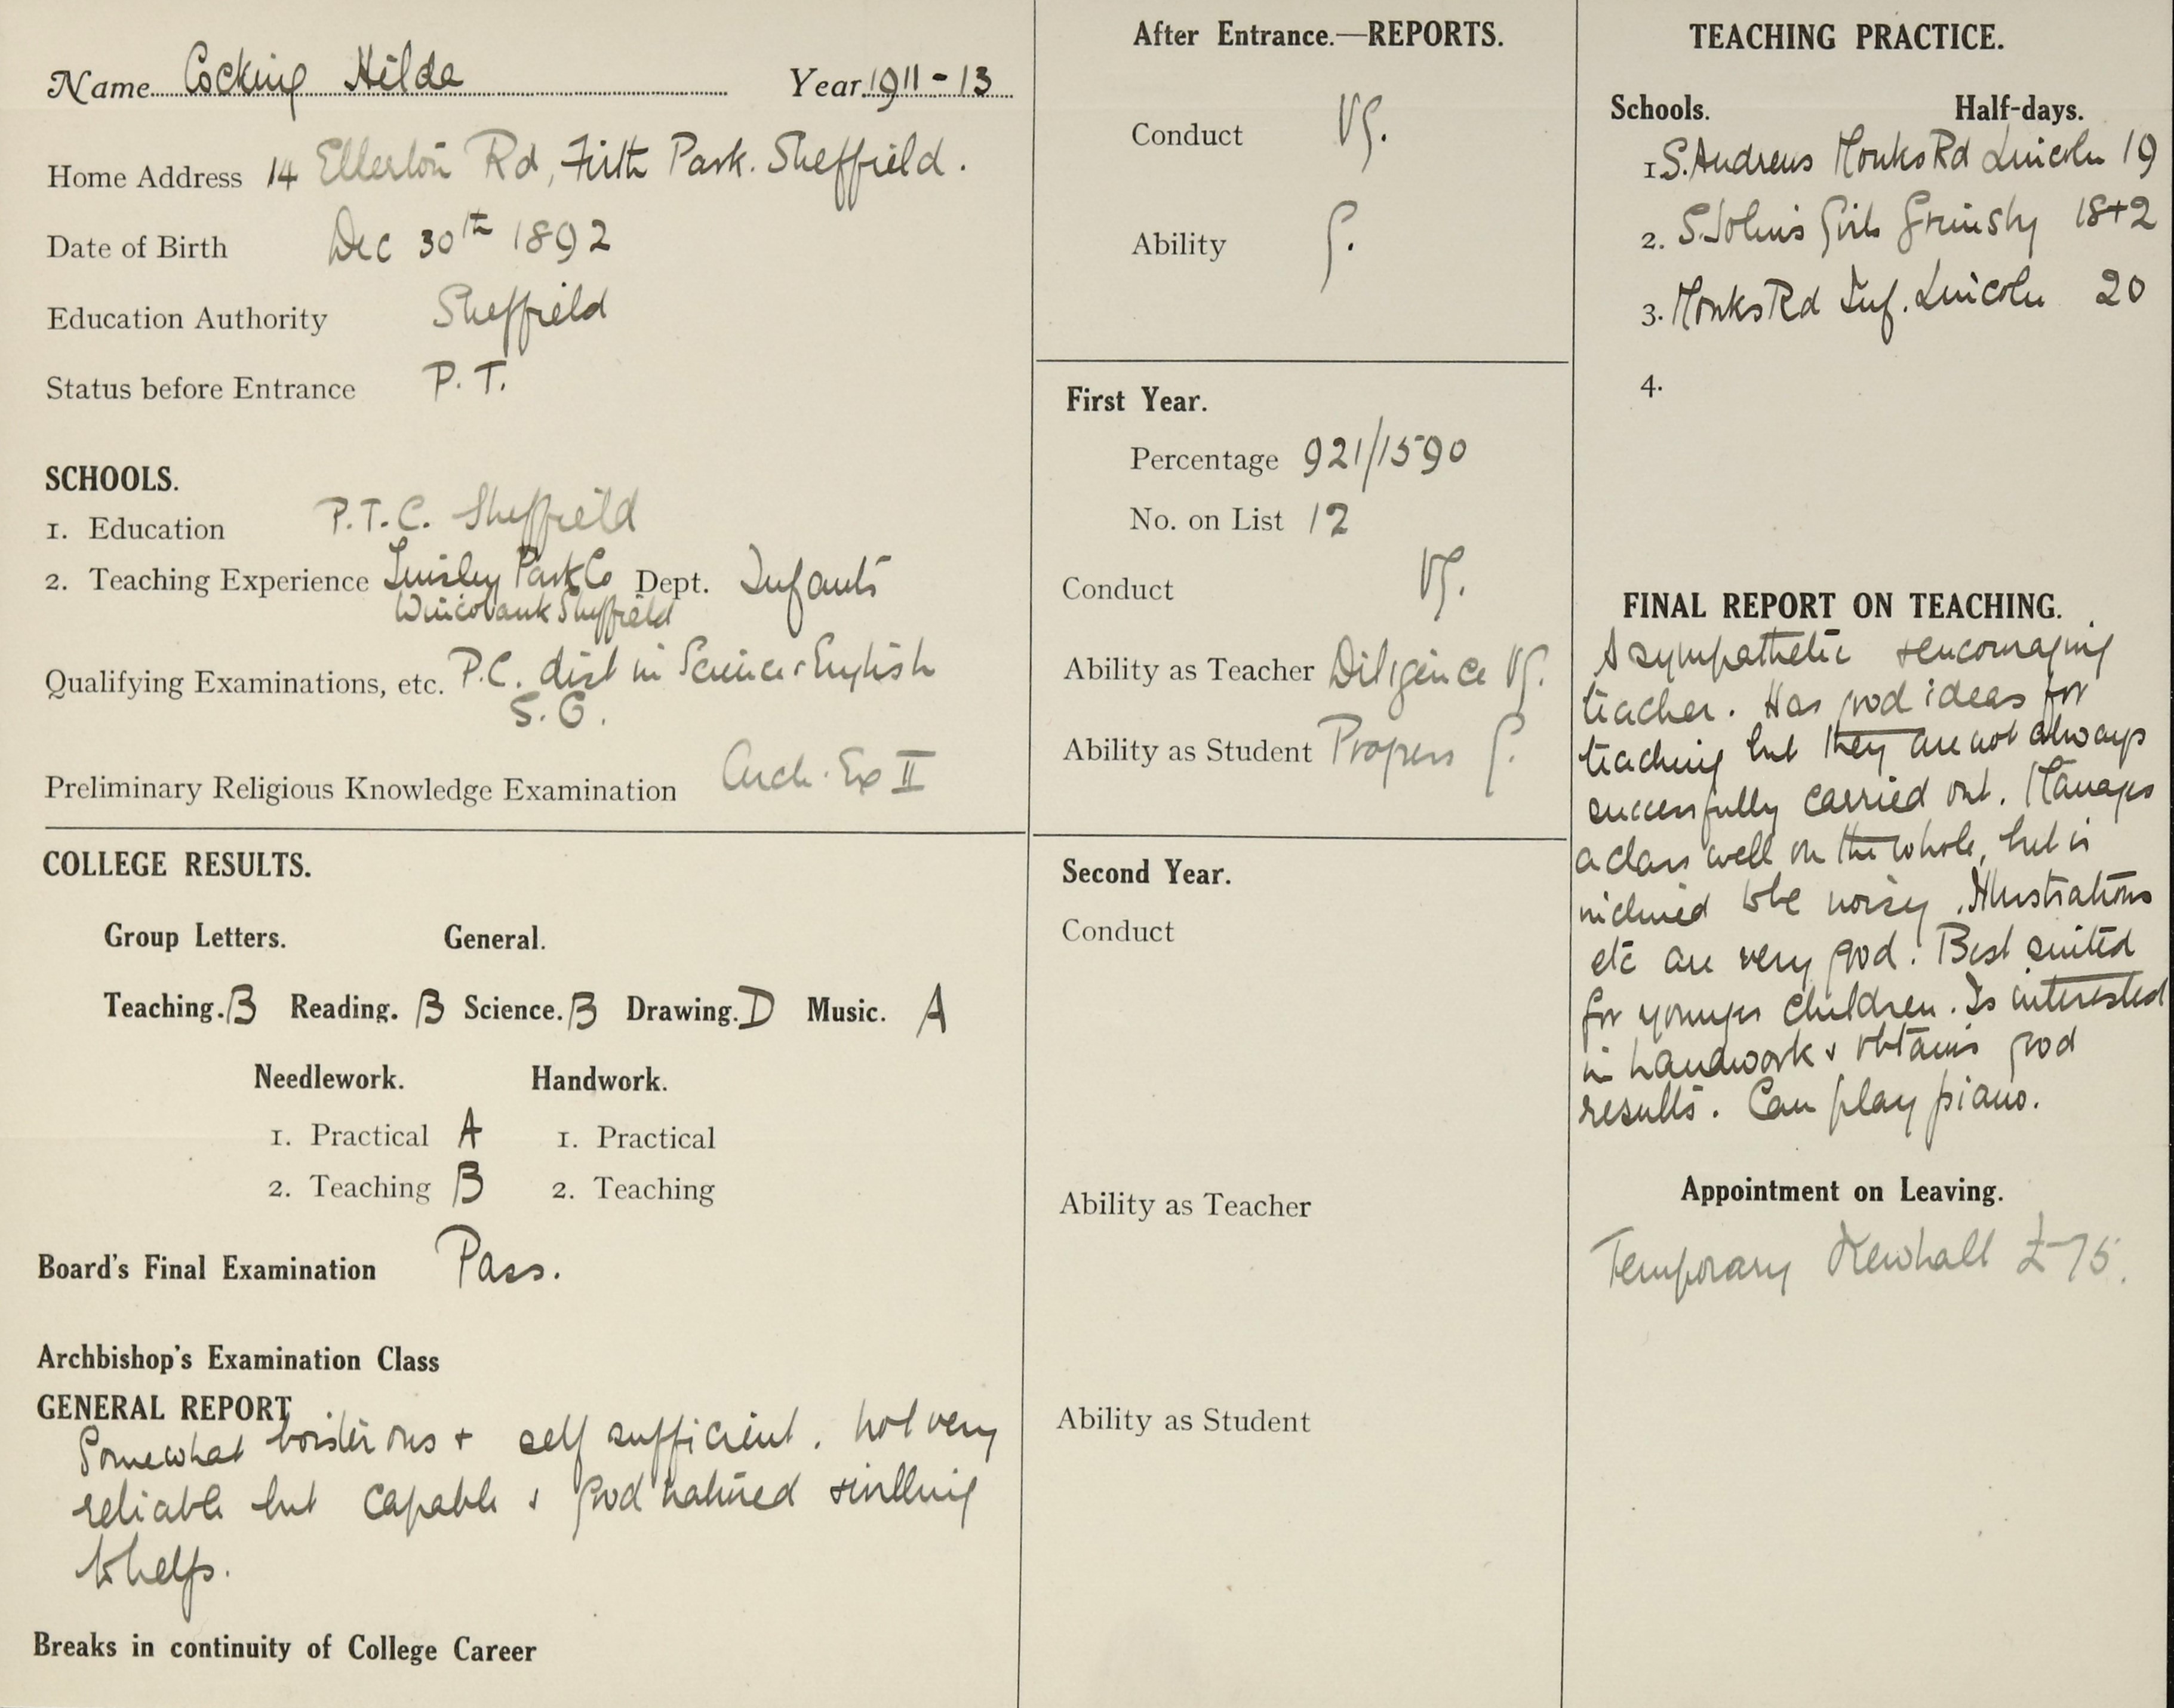 Name Cocking Hilda Year 1911-13
Home Address 14 Ellerton Rd, Firth Park. Sheffield.
Date of Birth Dec 30th 1892
Education Authority Sheffield
Status before Entrance P.T.
SCHOOLS.
1. Education P.T.C. Sheffield
2. Teaching Experience Tinsley Park Co Dept. Infants
Wincobank Sheffield
Qualifying Examinations, etc. P.C. dist in Science & English
S.G.
Preliminary Religious Knowledge Examination Arch. Ex II
COLLEGE RESULTS.
Group Letters. General.
Teaching. B Reading. B Science. B Drawing. D Music. A
Needlework. Handwork.
1. Practical A 1. Practical
2. Teaching B 2. Teaching
Board's Final Examination Pass.
Archbishop's Examination Class
GENERAL REPORT
Somewhat boisterous + self sufficient. not very
reliable but capable & good natured & willing
to help.
Breaks in continuity of College Career
After Entrance.—REPORTS.
Conduct VG.
Ability G.
First Year.
Percentage 921/1590
No. on List 12
Conduct VG.
Ability as Teacher Diligence VG.
Ability as Student Progress G.
Second Year.
Conduct
Ability as Teacher
Ability as Student
TEACHING PRACTICE.
Schools. Half-days.
1. S. Andrews Monks Rd Lincoln 19
2. S. John's Girls Grimsby 18+2
3. Monks Rd Inf. Lincoln 20
4.
FINAL REPORT ON TEACHING.
A sympathetic & encouraging
teacher. Has good ideas for
teaching but they are not always
successfully carried out. Manages
a class well on the whole, but is
inclined to be noisy. Illustrations
etc are very good. Best suited
for younger children. Is interested
in handwork & obtains good
results. Can play piano.
Appointment on Leaving.
Temporary Newhall £75.